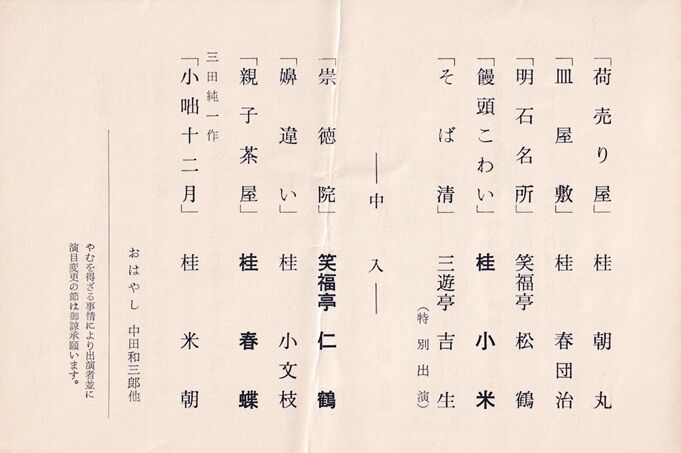 「荷売り屋」桂 朝丸
「皿屋敷」桂 春団治
「明石名所」笑福亭 松鶴
「饅頭こわい」桂 小米
「そば清」三遊亭 吉生
(特別出演)
―中入―
「崇徳院」笑福亭 仁鶴
「嬶違い」桂 小文枝
「親子茶屋」桂 春蝶
三田純一作
「小咄十二月」桂 米朝
おはやし 中田和三郎他
やむを得ざる事情により出演者並に
演目変更の節は御諒承願います。